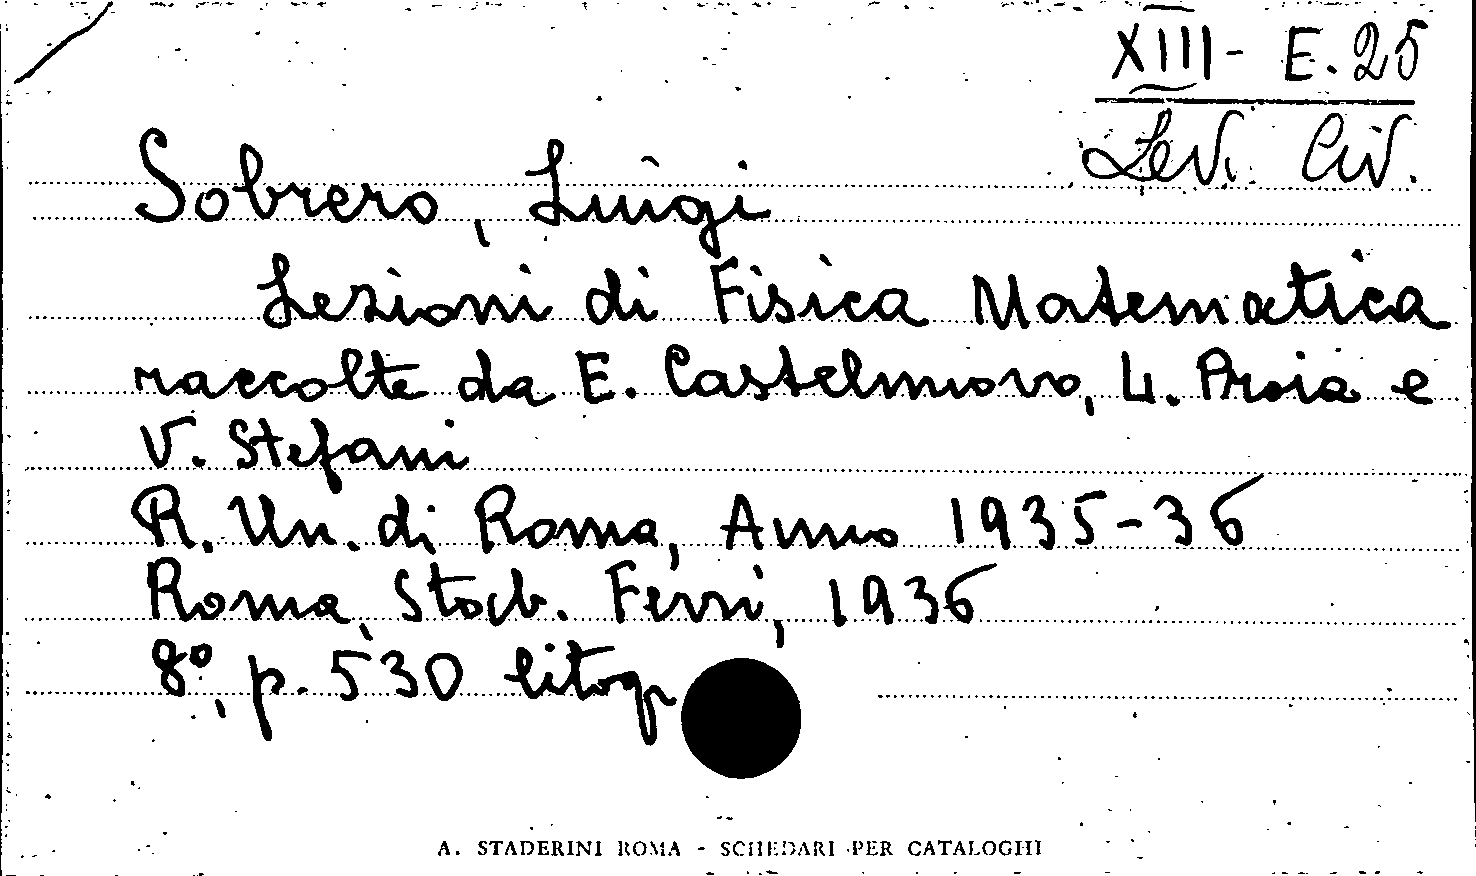 XIII - E. 25
Lev. Civ.
Sobrero, Luigi
Lezioni di Fisica Matematica
raccolte da E. Castelnuovo, L. Proia e
V. Stefani
R. Un. di Roma, Anno 1935-36
Roma, Stab. Ferri, 1936
8°, p. 530 litogr
A. STADERINI ROMA - SCHEDARI PER CATALOGHI